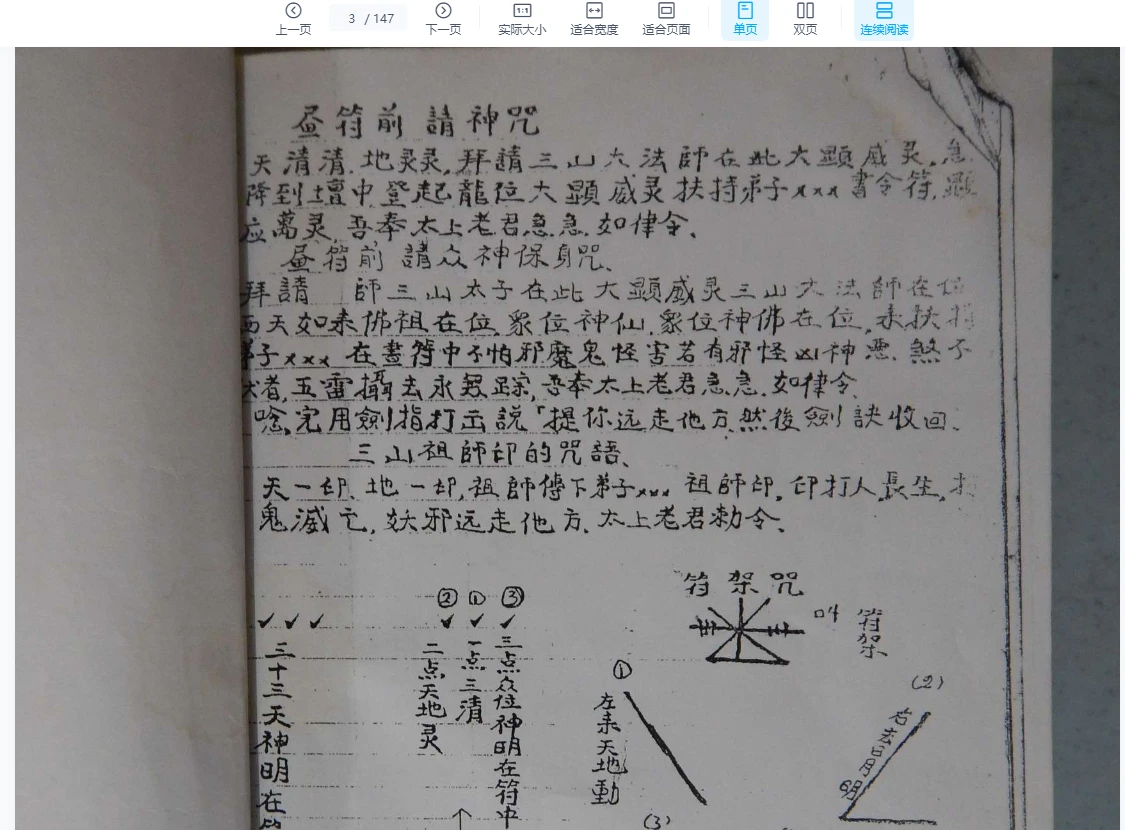 上一页
3 / 147
下一页
1:1
实际大小
适合宽度
适合页面
单页
双页
连续阅读
昼符前請神咒
天清清.地灵灵,拜請三山大法師在此大顕威灵.急
降到壇中登起龍位大顕威灵扶持弟子xxx書令符,顕
应萬灵,吾奉太上老君急急.如律令、
昼符前請众神保身咒、
拜請 師三山太子在此大顕威灵三山大法師在位
西天如来佛祖在位.衆位神仙.衆位神佛在位,来扶持
弟子xxx在晝符中不怕邪魔鬼怪害若有邪怪凶神悪.煞不
伏者,五雷攝去永無踪,吾奉太上老君急急.如律令.
唸完用劍指打出説「提你远走他方然後劍訣收回.
三山祖師印的咒語、
天一印、地一印,祖師傳下弟子xxx祖師印,印打人長生,打
鬼滅亡,妖邪远走他方.太上老君勅令、
符架咒
叫
符架
② ① ③
✓ ✓ ✓ ✓ ✓ ✓
三点众位神明在符中
一点三清
二点天地灵
三十三天神明在符
①
左来天地動
(2)
右去日月明
(3)